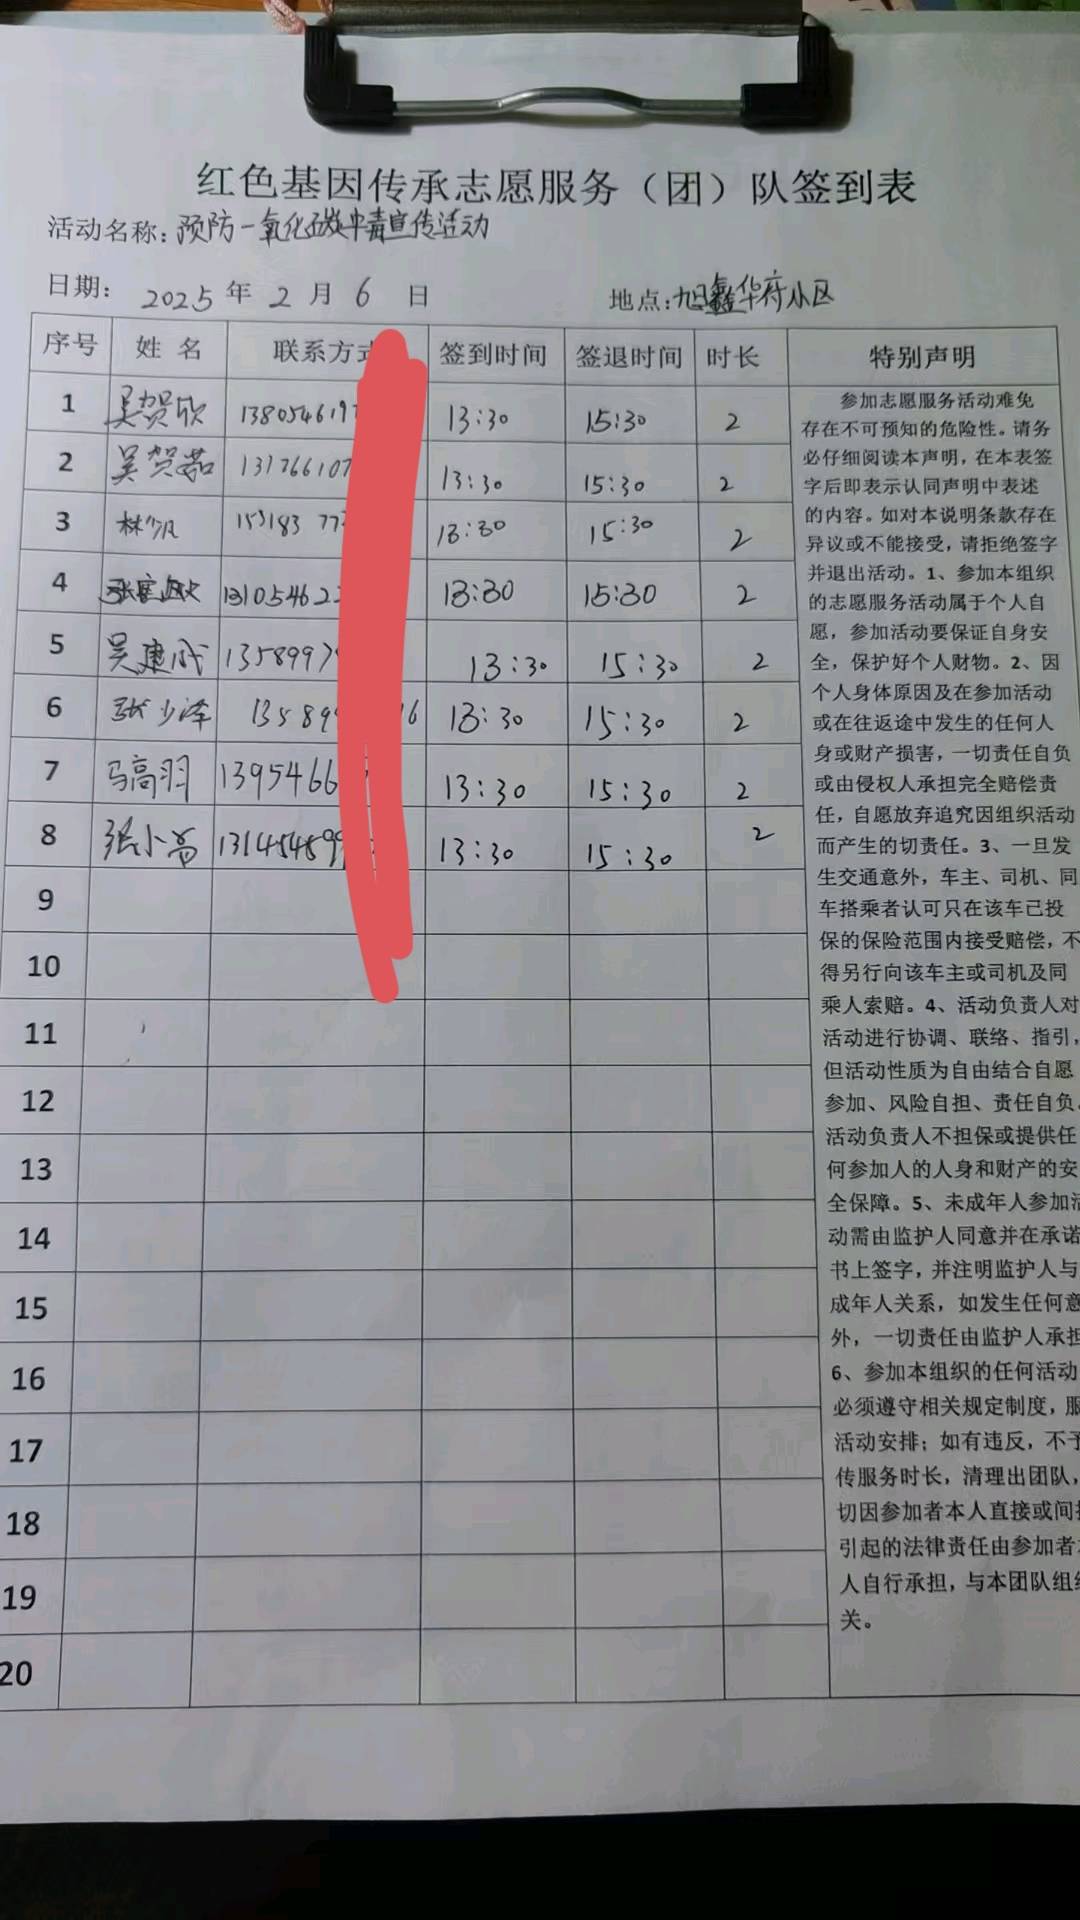 红色基因传承志愿服务（团）队签到表
活动名称：预防一氧化碳中毒宣传活动
日期： 2025 年 2 月 6 日 地点：旭鑫华府小区
序号 姓名 联系方式 签到时间 签退时间 时长 特别声明
1 吴贺欣 138054619 13:30 15:30 2
2 吴贺茹 131766107 13:30 15:30 2
3 林少凡 153183 77 13:30 15:30 2
4 131054622 13:30 15:30 2
5 吴建成 1358997 13:30 15:30 2
6 张少泽 13589 16 13:30 15:30 2
7 马高羽 1395466 13:30 15:30 2
8 张小高 131454599 13:30 15:30 2
9
10
11
12
13
14
15
16
17
18
19
20
参加志愿服务活动难免
存在不可预知的危险性。请务
必仔细阅读本声明，在本表签
字后即表示认同声明中表述
的内容。如对本说明条款存在
异议或不能接受，请拒绝签字
并退出活动。1、参加本组织
的志愿服务活动属于个人自
愿，参加活动要保证自身安
全，保护好个人财物。2、因
个人身体原因及在参加活动
或在往返途中发生的任何人
身或财产损害，一切责任自负
或由侵权人承担完全赔偿责
任，自愿放弃追究因组织活动
而产生的切责任。3、一旦发
生交通意外，车主、司机、同
车搭乘者认可只在该车已投
保的保险范围内接受赔偿，不
得另行向该车主或司机及同
乘人索赔。4、活动负责人对
活动进行协调、联络、指引，
但活动性质为自由结合自愿
参加、风险自担、责任自负。
活动负责人不担保或提供任
何参加人的人身和财产的安
全保障。5、未成年人参加活
动需由监护人同意并在承诺
书上签字，并注明监护人与
成年人关系，如发生任何意
外，一切责任由监护人承担
6、参加本组织的任何活动
必须遵守相关规定制度，服
活动安排；如有违反，不予
传服务时长，清理出团队，
切因参加者本人直接或间接
引起的法律责任由参加者本
人自行承担，与本团队组织
关。